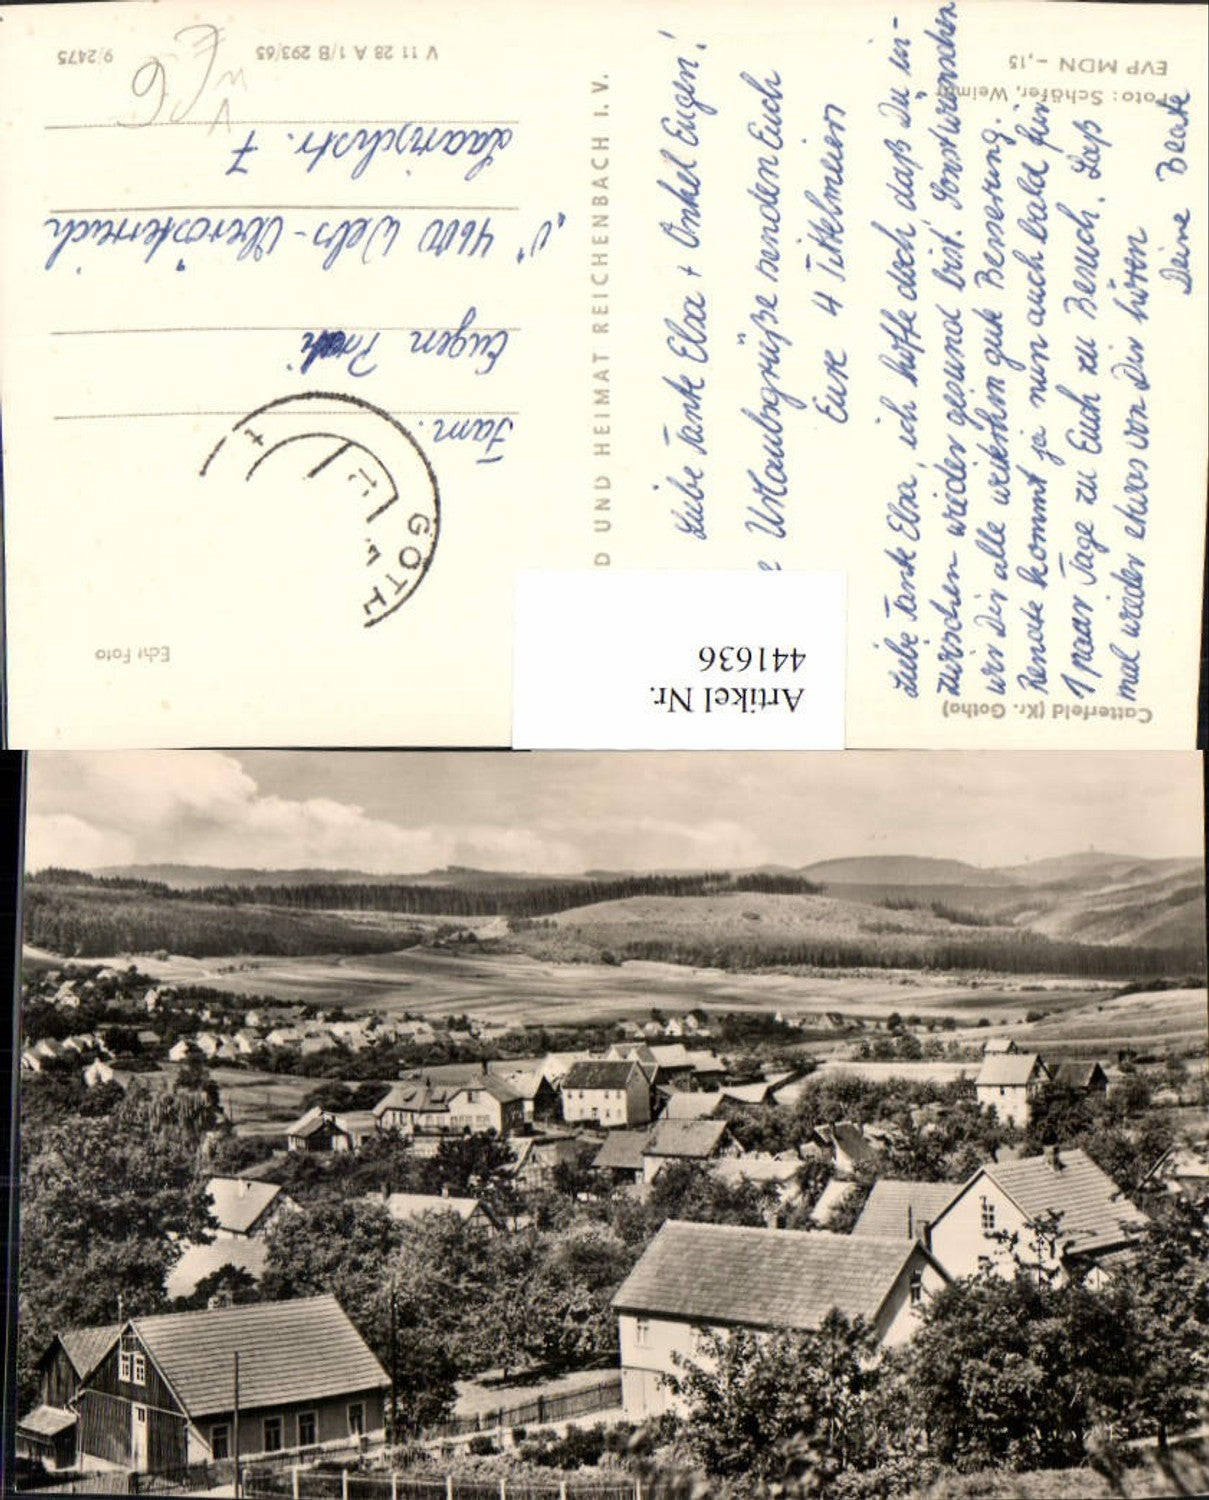 Catterfeld (Kr. Gotha)
Liebe Tante Elsa + Onkel Eugen!
Urlaubsgrüße senden Euch
Eure 4 Tittelmeier
Liebe Tante Elsa, ich hoffe doch daß Du in-
zwischen wieder gesund bist. Sonst wünschen
wir Dir alle weiterhin gute Besserung.
Renate kommt ja nun auch bald für
1 paar Tage zu Euch zu Besuch. Laß
mal wieder etwas von Dir hören
Deine Beate
Foto: Schäfer, Weimar
EVP MDN -,15
D UND HEIMAT REICHENBACH I. V.
Echt Foto
GOTH
Fam.
Eugen
"Ü" 4600 Wels-Oberösterreich
7
V 11 28 A 1/B 293/65
9/2475
Artikel Nr.
441636